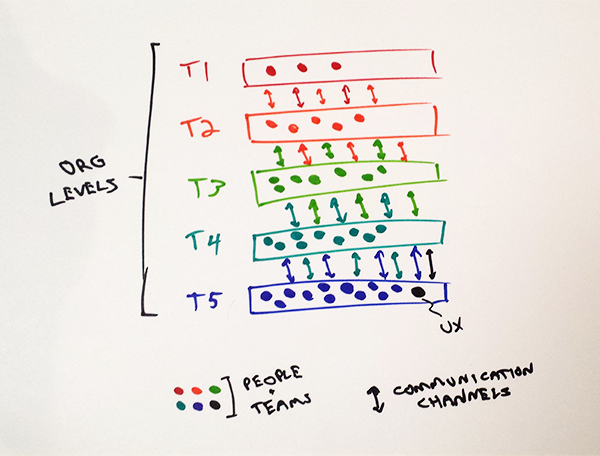 T1
T2
ORG
LEVELS
T3
T4
T5
UX
PEOPLE
+
TEAMS
COMMUNICATION
CHANNELS